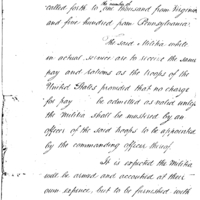 the number of
called forth to one thousand from Virginia
and five hundred from Pennsylvania.
The said Militia while
in actual service are to receive the same
pay and rations as the troops of the
United States provided that no charge
for pay be admitted as valid unless
the Militia shall be mustered by an
officer of the said troops to be appointed
by the commanding officer thereof.
It is expected the Militia
will be armed and accoutred at their
own expence, but to be furnished with